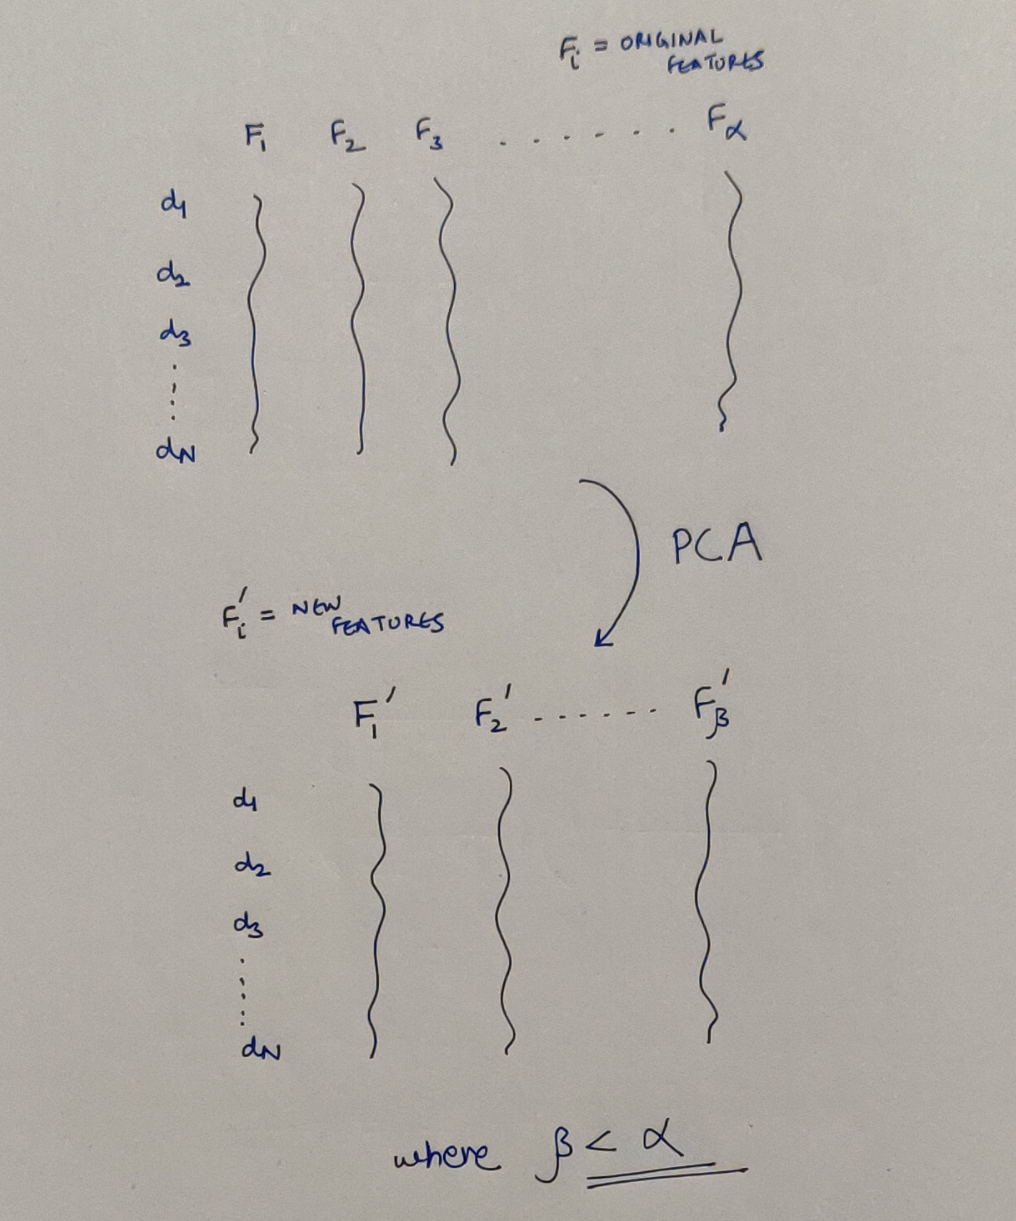 Fi = ORIGINAL
FEATURES
F1 F2 F3 ....... Fα
d1
d2
d3
dN
PCA
Fi' = NEW
FEATURES
F1' F2' ....... Fβ'
d1
d2
d3
dN
where β < α